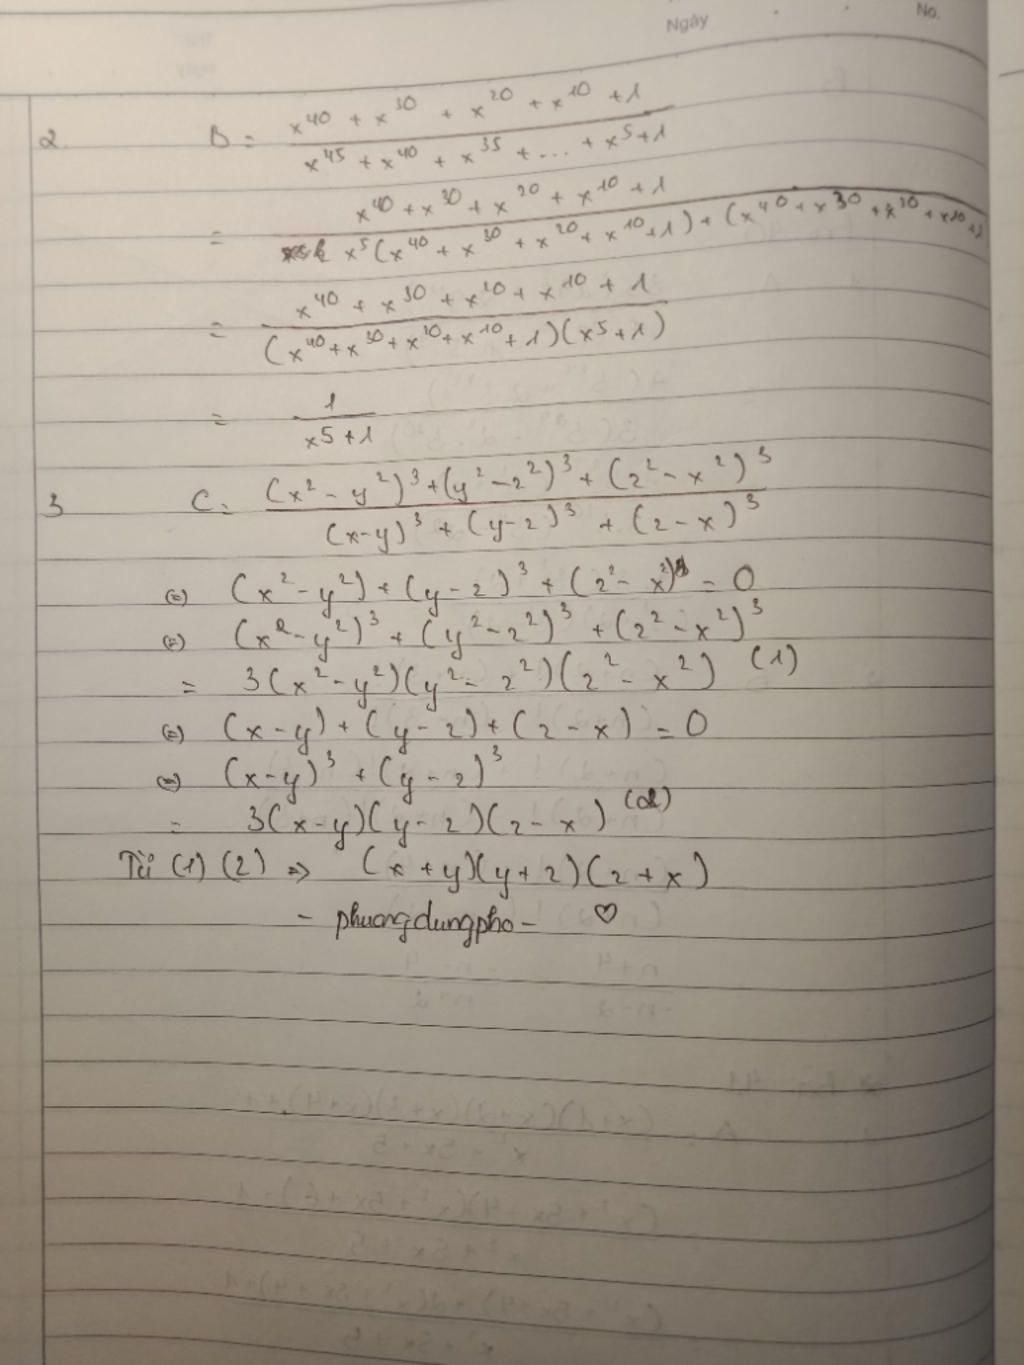 Ngày No.
2. B = x^40 + x^30 + x^20 + x^10 + 1 / x^45 + x^40 + x^35 + ... + x^5 + 1
= x^40 + x^30 + x^20 + x^10 + 1 / x^5 (x^40 + x^30 + x^20 + x^10 + 1) + (x^40 + x^30 + x^20 + x^10 + 1
= x^40 + x^30 + x^20 + x^10 + 1 / (x^40 + x^30 + x^20 + x^10 + 1)(x^5 + 1)
= 1 / x^5 + 1
3 C = (x^2 - y^2)^3 + (y^2 - z^2)^3 + (z^2 - x^2)^3 / (x-y)^3 + (y-z)^3 + (z-x)^3
(=) (x^2 - y^2) + (y - z)^3 + (z^2 - x^2) = 0
(=) (x^2 - y^2)^3 + (y^2 - z^2)^3 + (z^2 - x^2)^3
= 3(x^2 - y^2)(y^2 - z^2)(z^2 - x^2) (1)
(=) (x - y) + (y - z) + (z - x) = 0
(=) (x - y)^3 + (y - z)^3
= 3(x - y)(y - z)(z - x) (2)
Từ (1) (2) => (x + y)(y + z)(z + x)
- phuongdungpho - ♡